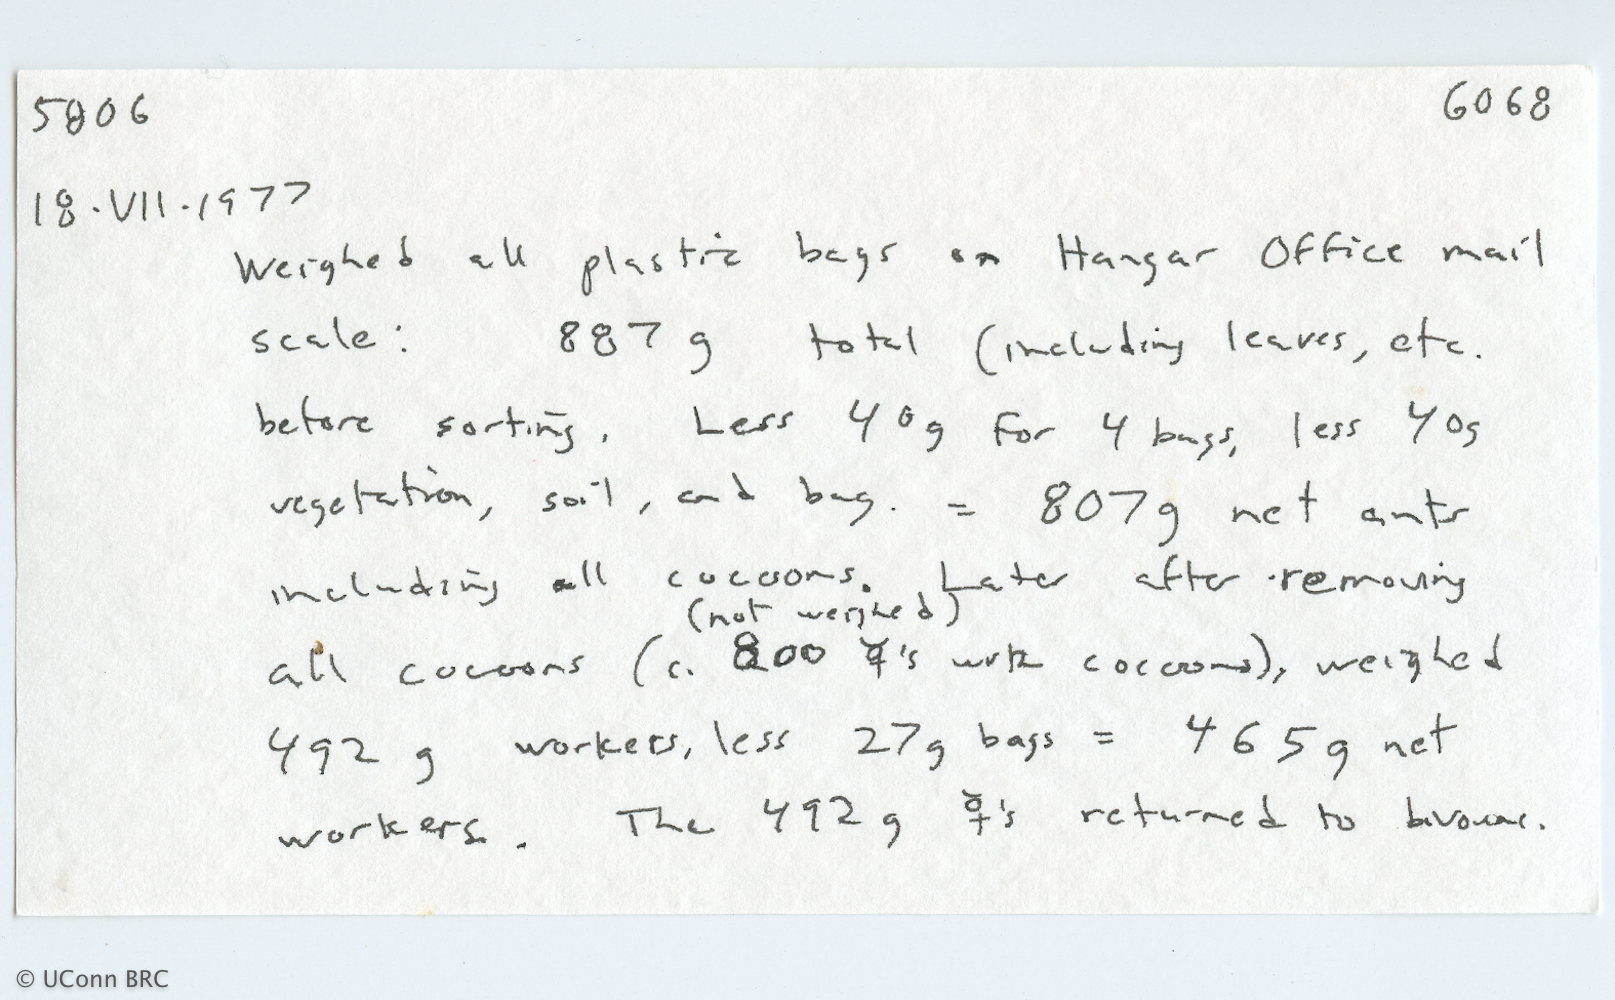 5806 6068
18.VII.1977
Weighed all plastic bags on Hangar Office mail
scale: 887 g total (including leaves, etc.
before sorting. Less 40g for 4 bags, less 40g
vegetation, soil, and bag. = 807g net ants
including all cocoons. Later after removing
(not weighed)
all cocoons (c. 800 ☿'s with cocoons), weighed
492 g workers, less 27g bags = 465g net
workers. The 492 g ☿'s returned to bivouac.
© UConn BRC